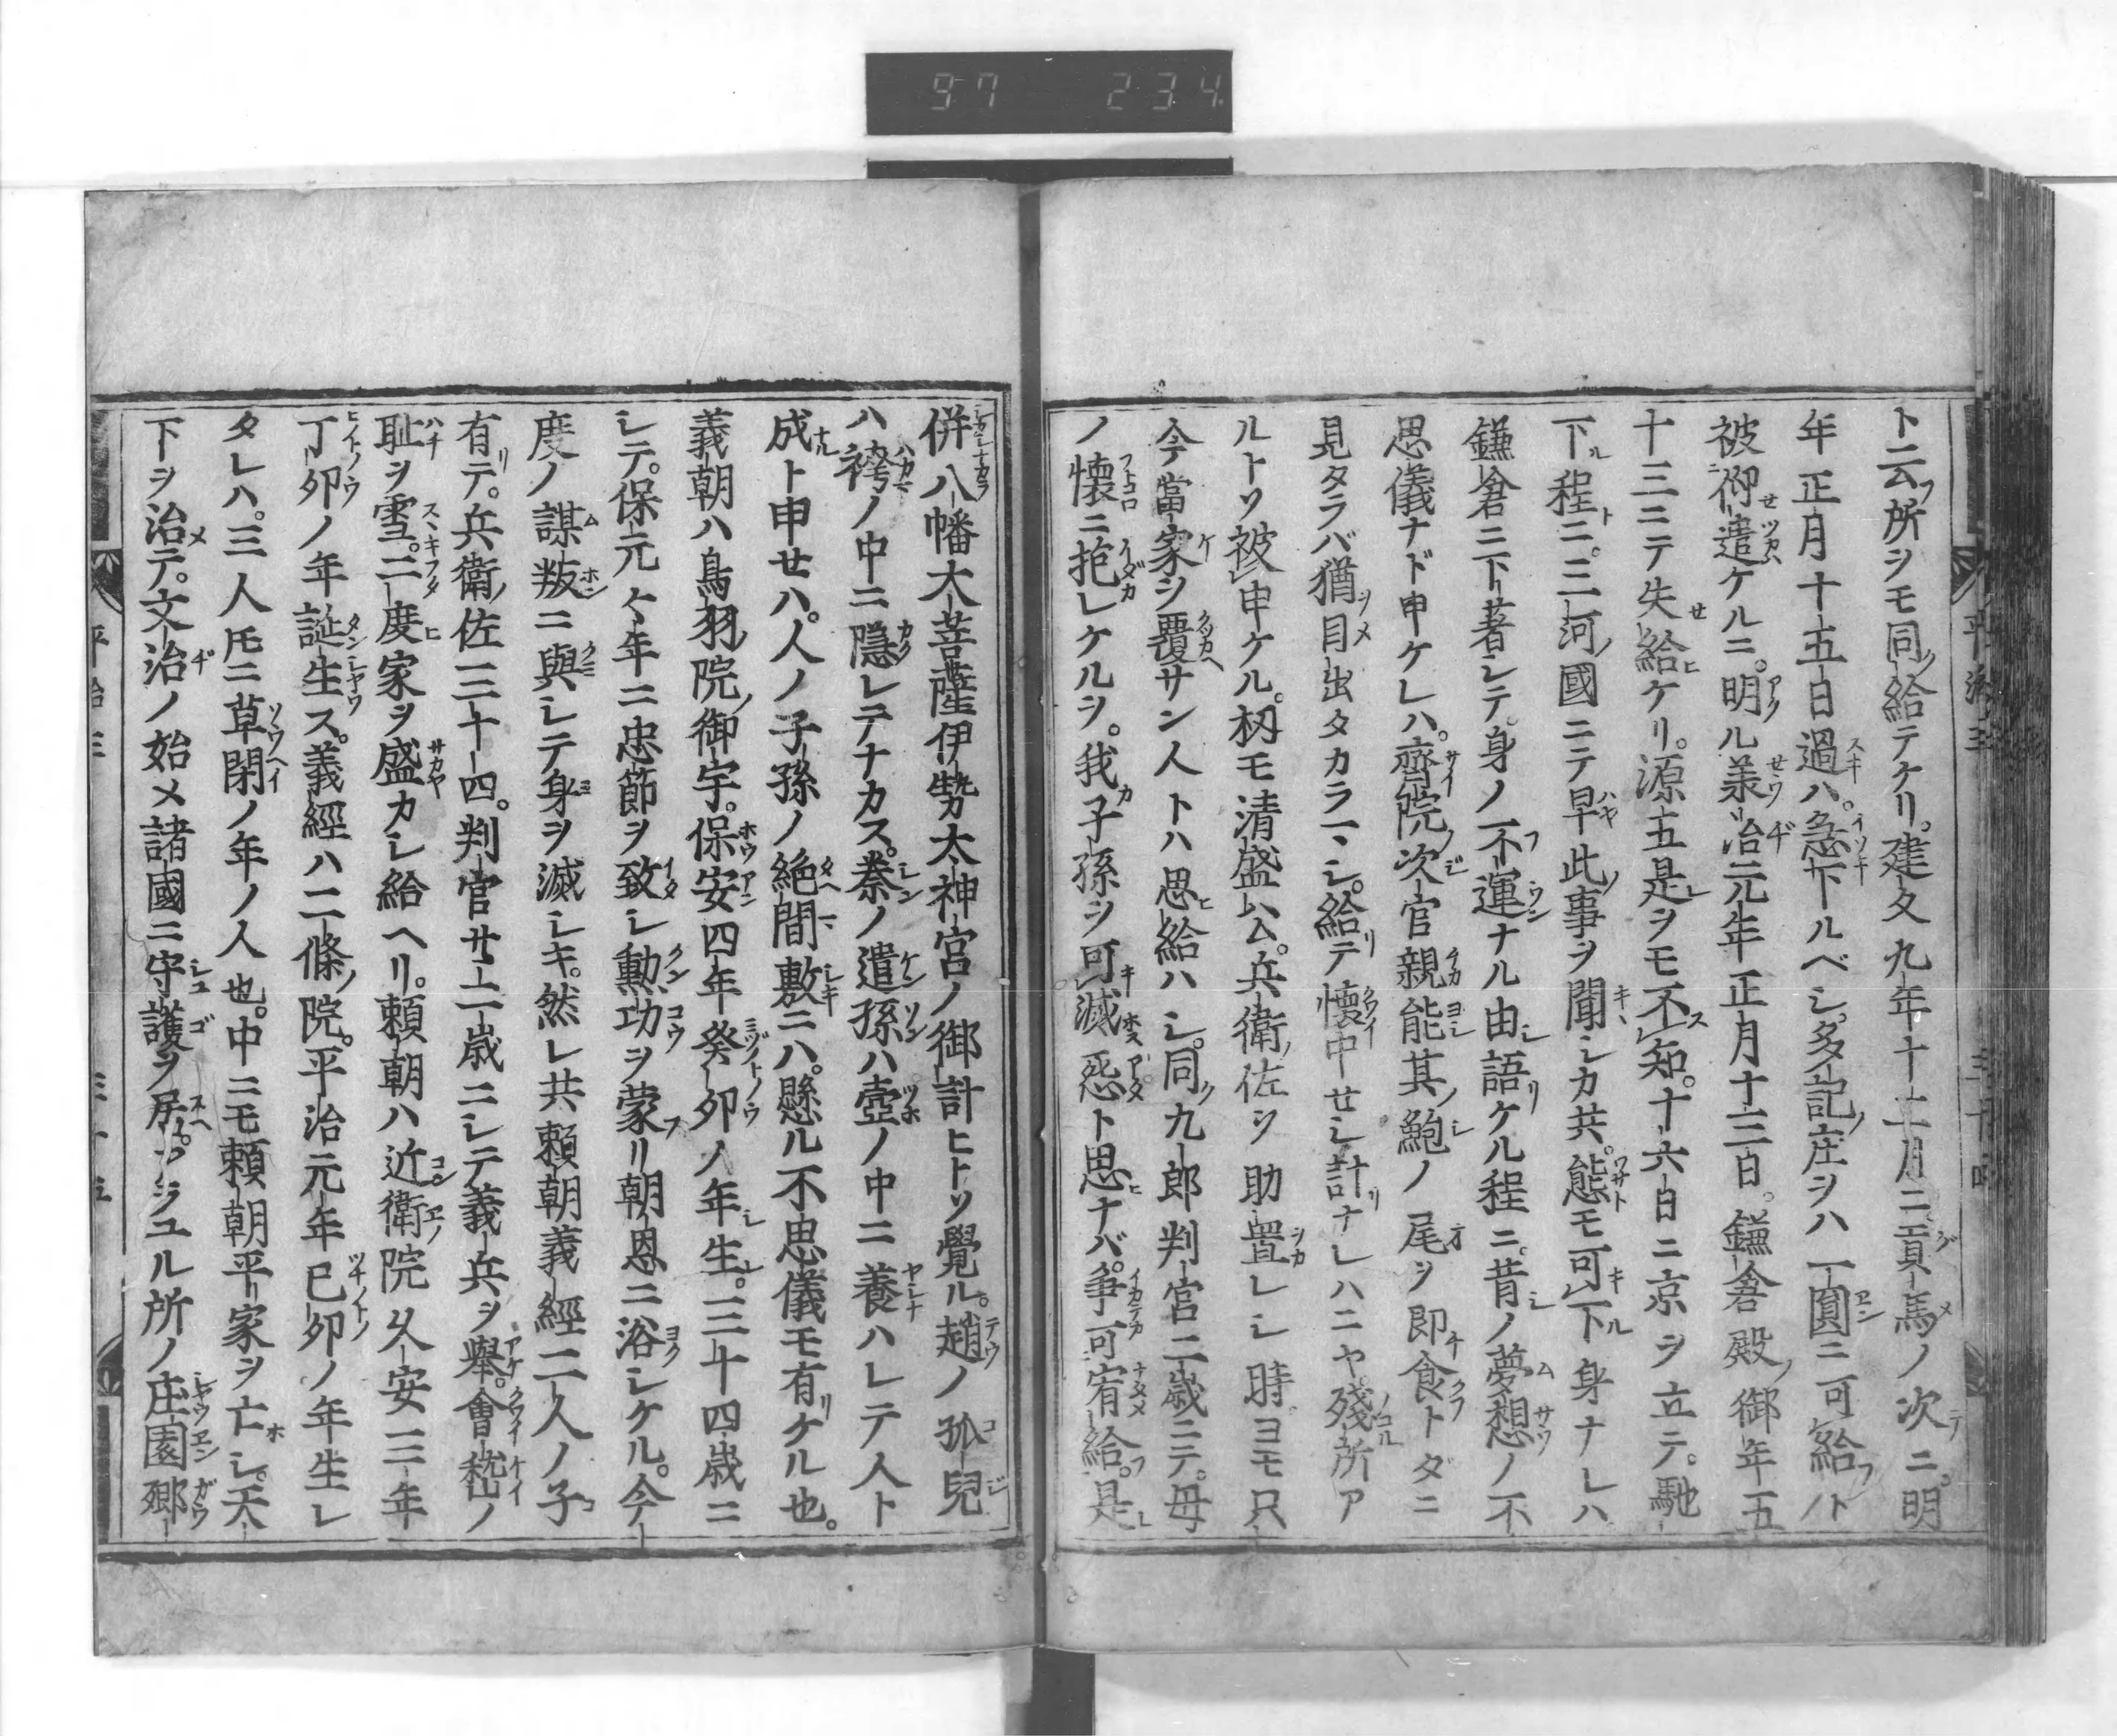 97 234
ト云所ヲモ同給テケリ。建久九年十二月ニ貢馬ノ次ニ。明
年正月十五日過ハ。急下ルベシ。多記庄ヲハ一圓ニ可給ト
被仰遣ケルニ。明ル羕治元年正月十三日。鎌倉殿御年五
十三ニテ失給ケリ。源五是ヲモ不知。十六日ニ京ヲ立テ。馳
下程ニ。三河國ニテ早此事ヲ聞シカ共。態モ可下身ナレハ
鎌倉ニ下著シテ。身ノ不運ナル由語ケル程ニ。昔ノ夢想ノ不
思儀ナド申ケレハ。齋院次官親能其鮑ノ尾ヲ即食トダニ
見タラバ猶目出タカラマシ。給テ懐中せシ計ナレハニヤ。残所ア
ルトソ被申ケル。杒モ清盛公。兵衛佐ヲ助置レシ時ヨモ只
今當家ヲ覆サン人トハ思給ハシ。同九郎判官二歳ニテ。母
ノ懐ニ拒レケルヲ。我子孫ヲ可滅怨ト思ナバ。争可宥給。是
平治三
三十四
併八幡大菩薩伊勢太神宮ノ御計ヒトソ覺ル。趙ノ孤兒
ハ袴ノ中ニ隠レテナカス。秦ノ遺孫ハ壺ノ中ニ養ハレテ人ト
成ト申せハ。人ノ子孫ノ絶間敷ニハ。懸ル不思儀モ有ケル也。
義朝ハ鳥羽院御宇。保安四年癸卯ノ年生。三十四歳ニ
シテ。保元々年ニ忠節ヲ致シ勲功ヲ蒙リ朝恩ニ浴シケル。今
度ノ謀叛ニ與シテ身ヲ滅シキ。然レ共頼朝義經二人ノ子
有テ。兵衛佐三十四。判官廿五歳ニシテ義兵ヲ舉。會嵇ノ
耻ヲ雪。二度家ヲ盛カシ給ヘリ。頼朝ハ近衛院久安三年
丁卯ノ年誕生ス。義經ハ二條院。平治元年己卯ノ年生レ
タレハ。三人𪜈ニ草閉ノ年ノ人也。中ニモ頼朝平家ヲ亡シ。天
下ヲ治テ。文治ノ始メ諸國ニ守護ヲ居。アラユル所ノ庄園郷
平治三
三十五